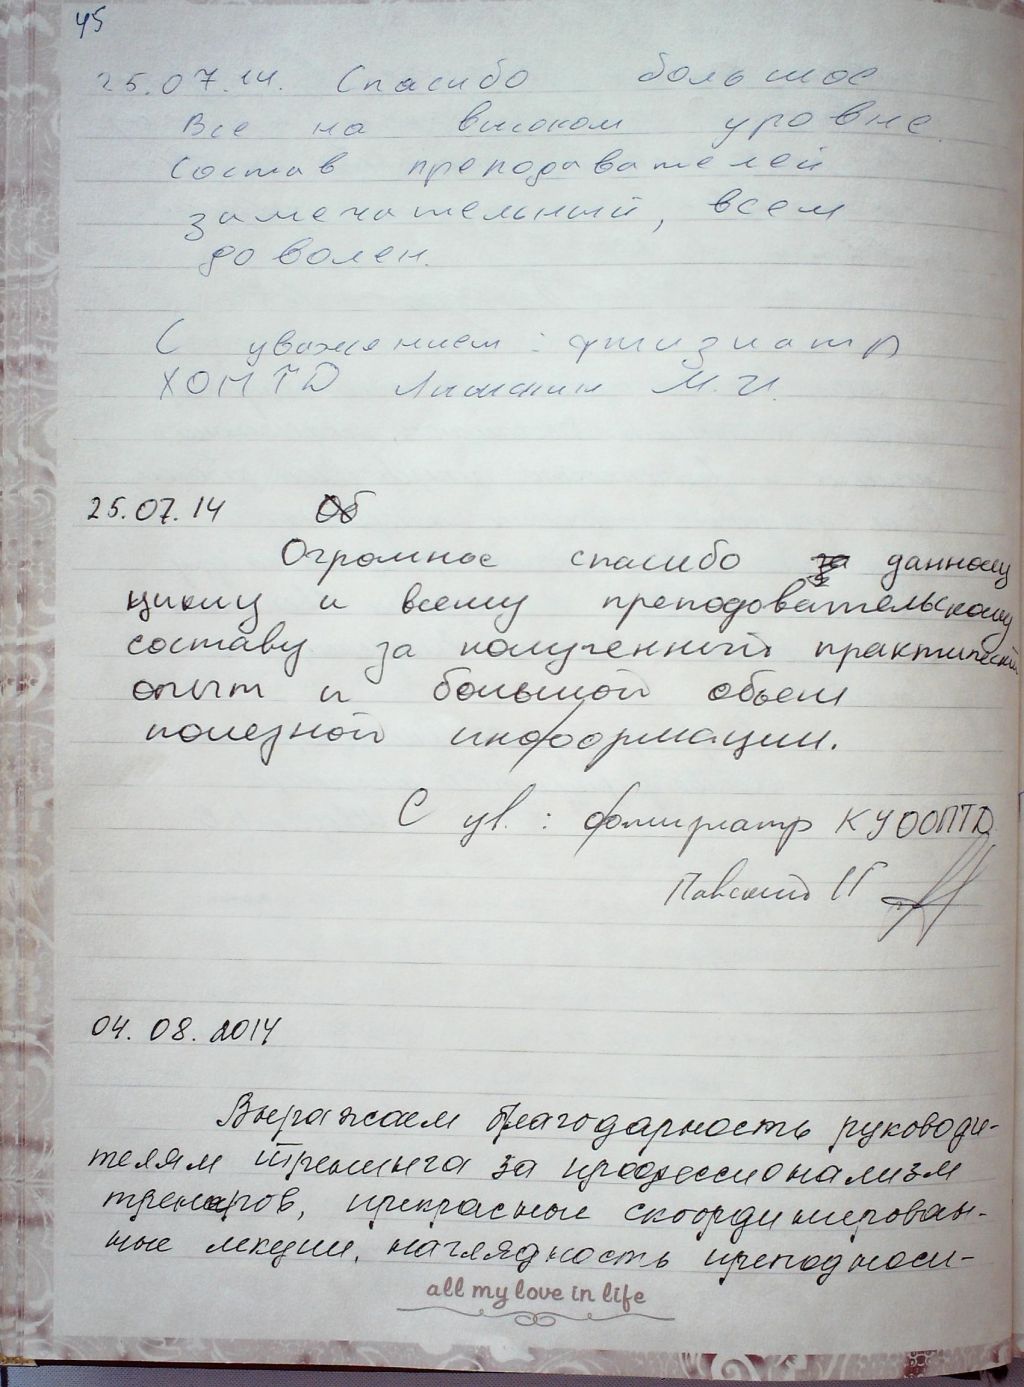 45
25.07.14. Спасибо большое
Все на высоком уровне
Состав преподавателей
замечательный, всем
доволен.
С уважением: фтизиатр
М.И.
25.07.14 Об
Огромное спасибо за данному
циклу и всему преподовательскому
составу за полученный практический
опыт и большой обьем
полезной информации.
С ув.: фтизиатр КУООПТД
04. 08. 2014
Выражаем благодарность руководи-
телям тренинга за профессионализм
тренеров, прекрасные скоординирован-
ные лекции, наглядность преподноси-
all my love in life